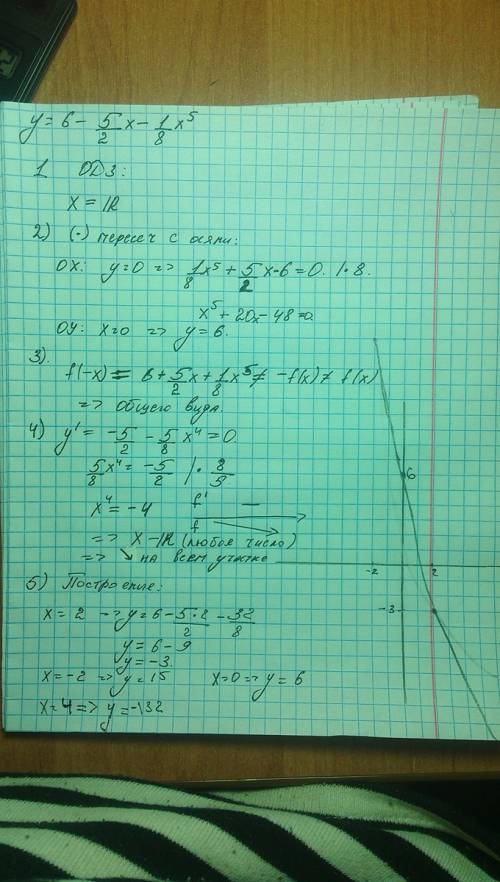 y = 6 - 5/2 x - 1/8 x⁵
1 ОДЗ:
X = IR
2) (·) пересеч с осями:
OX: y=0 => 1/8 x⁵ + 5/2 x - 6 = 0. | · 8.
x⁵ + 20x - 48 = 0.
OY: x=0 => y = 6.
3).
f(-x) = 6 + 5/2 x + 1/8 x⁵ ≠ -f(x) ≠ f(x)
=> общего вида.
4) y' = -5/2 - 5/8 x⁴ = 0.
5/8 x⁴ = -5/2 | · 8/5
x⁴ = -4
f' —
f
=> X - IR (любое число)
=> ↘ на всем участке
5) Построение:
x = 2 -> y = 6 - 5·2/2 - 32/8
y = 6 - 9
y = -3.
x = -2 => y = 15 x=0 => y = 6
x = 4 => y = -132
6
-2 2
-3